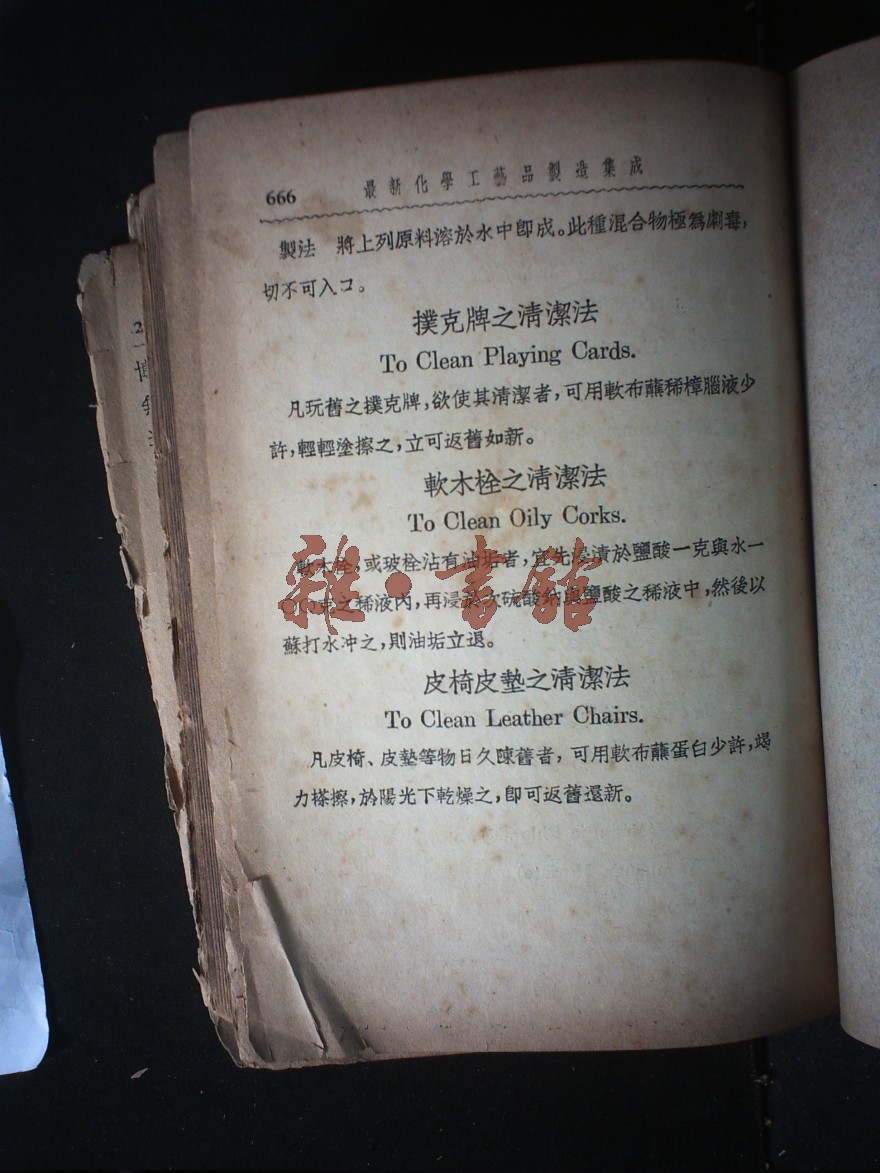 666 最新化學工藝品製造集成
製法 將上列原料溶於水中卽成。此種混合物極爲劇毒,
切不可入口。
撲克牌之淸潔法
To Clean Playing Cards.
凡玩舊之撲克牌,欲使其淸潔者,可用軟布蘸稀樟腦液少
許,輕輕塗擦之,立可返舊如新。
軟木栓之淸潔法
To Clean Oily Corks.
軟木栓,或玻栓沾有油垢者,宜先浸漬於鹽酸一克與水一
克之稀液內,再浸於次硫酸鈉與鹽酸之稀液中,然後以
蘇打水冲之,則油垢立退。
皮椅皮墊之淸潔法
To Clean Leather Chairs.
凡皮椅、皮墊等物日久陳舊者,可用軟布蘸蛋白少許,竭
力搽擦,於陽光下乾燥之,卽可返舊還新。
雜·書館